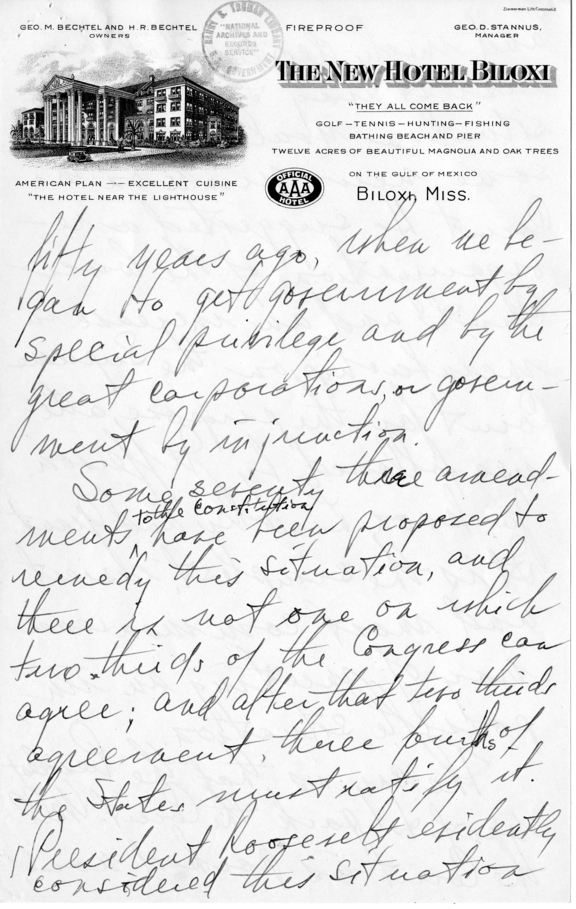 Zimmerman Litho Cincinnati O
GEO. M. BECHTEL AND H. R. BECHTEL
OWNERS
HARRY S. TRUMAN LIBRARY
"NATIONAL
ARCHIVES AND
RECORDS
SERVICE"
U.S. GOVERNMENT
FIREPROOF
GEO. D. STANNUS,
MANAGER
THE NEW HOTEL BILOXI
"THEY ALL COME BACK"
GOLF – TENNIS – HUNTING – FISHING
BATHING BEACH AND PIER
TWELVE ACRES OF BEAUTIFUL MAGNOLIA AND OAK TREES
AMERICAN PLAN — EXCELLENT CUISINE
"THE HOTEL NEAR THE LIGHTHOUSE"
OFFICIAL
AAA
HOTEL
ON THE GULF OF MEXICO
BILOXI, MISS.
fifty years ago, when we be-
gan to get government by
special privilege and by the
great corporations, or govern-
ment by injunction.
Some seventy three amend-
to the Constitution
ments, have been proposed to
remedy this situation, and
there is not one on which
two thirds of the Congress can
agree; and after that two thirds
agreement, three fourths of
the States must ratify it.
President Roosevelt evidently
considered this situation